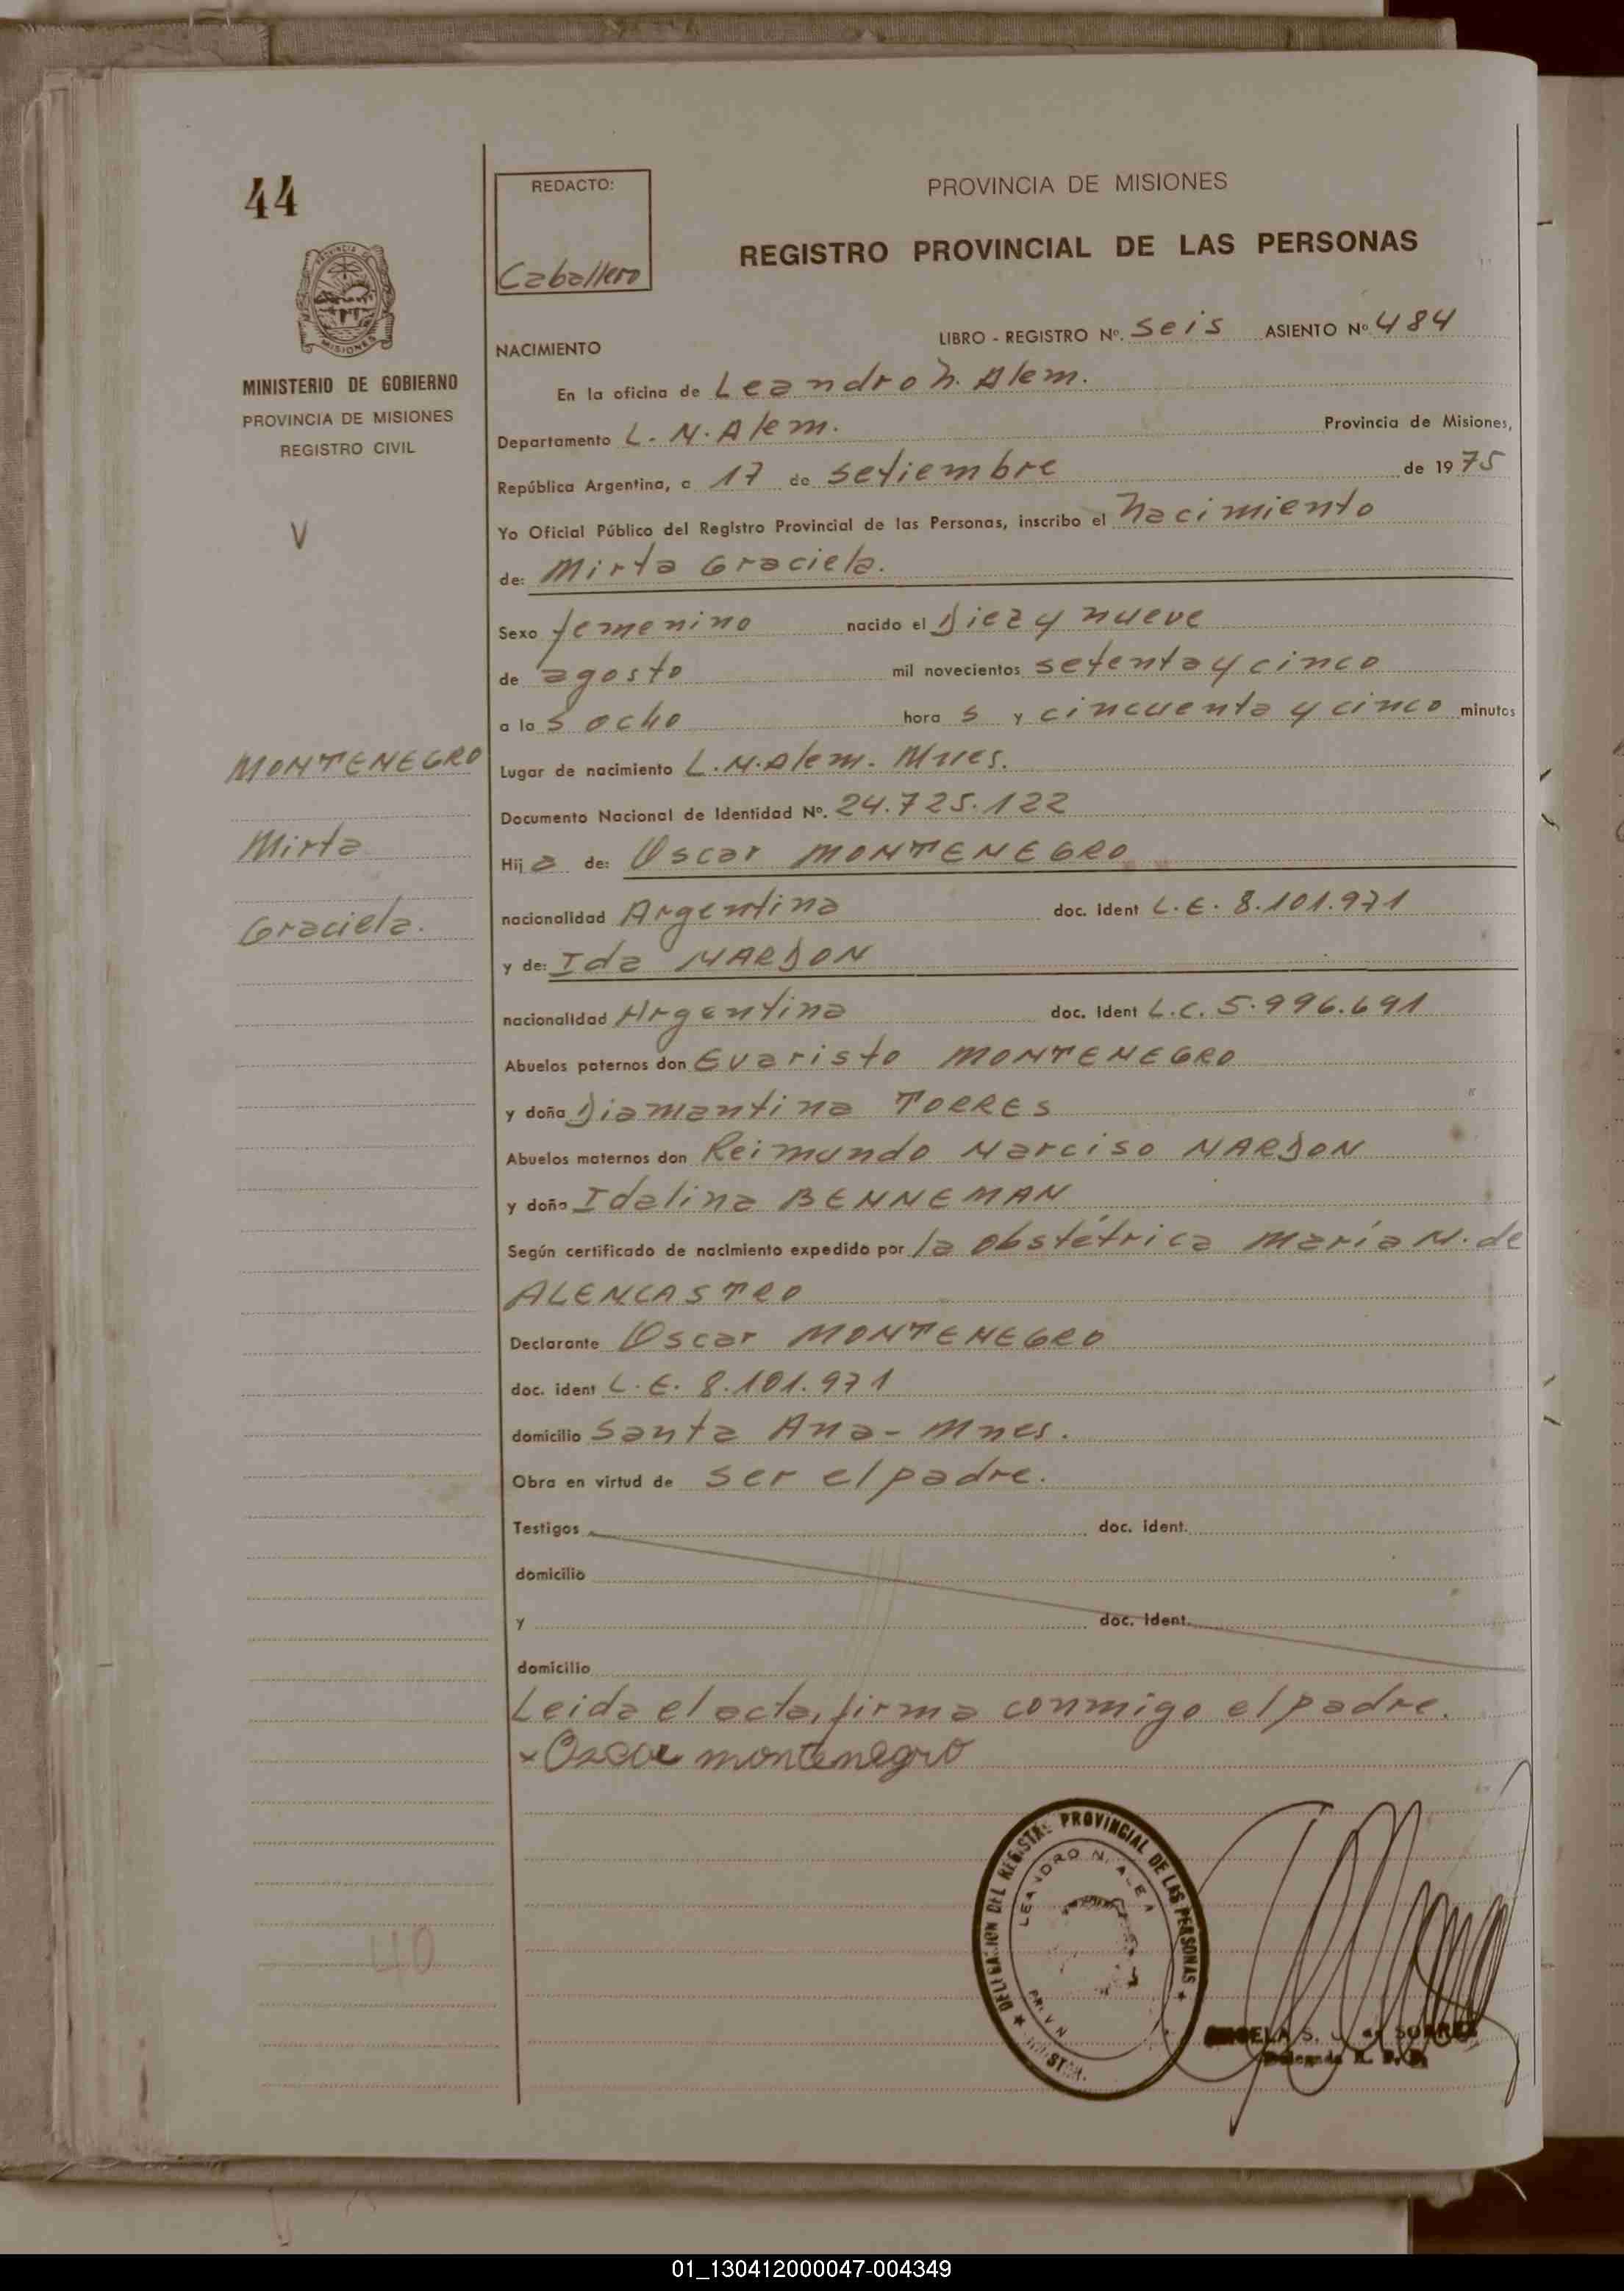 44
REDACTO:
Caballero
PROVINCIA DE MISIONES
REGISTRO PROVINCIAL DE LAS PERSONAS
PROVINCIA
MISIONES
MINISTERIO DE GOBIERNO
PROVINCIA DE MISIONES
REGISTRO CIVIL
V
MONTENEGRO
Mirta
Graciela.
40
LIBRO - REGISTRO Nº. Seis ASIENTO Nº 484
NACIMIENTO
En la oficina de Leandro N. Alem.
Departamento L. N. Alem. Provincia de Misiones,
República Argentina, a 17 de setiembre de 1975
Yo Oficial Público del Registro Provincial de las Personas, inscribo el Nacimiento
de: Mirta Graciela.
Sexo femenino nacido el Diez y nueve
de agosto mil novecientos setenta y cinco
a las ocho hora s y cincuenta y cinco minutos
Lugar de nacimiento L. N. Alem. Mnes.
Documento Nacional de Identidad Nº. 24.725.122
Hij a de: Oscar MONTENEGRO
nacionalidad Argentina doc. ident L.E. 8.101.971
y de: Ida NARDON
nacionalidad Argentina doc. ident L.C. 5.996.691
Abuelos paternos don Evaristo MONTENEGRO
y doña Diamantina TORRES
Abuelos maternos don Reimundo Narciso NARDON
y doña Idalina BENNEMAN
Según certificado de nacimiento expedido por la obstétrica María N. de
ALENCASTRO
Declarante Oscar MONTENEGRO
doc. ident L.E. 8.101.971
domicilio Santa Ana - Mnes.
Obra en virtud de ser el padre.
Testigos doc. ident.
domicilio
y doc. ident.
domicilio
Leida el acta, firma conmigo el padre.
x Oscar montenegro
DELEGACION DEL REGISTRO PROVINCIAL DE LAS PERSONAS
LEANDRO N. ALEM
S. de SOARES
Delegada R. P. P.
01_130412000047-004349